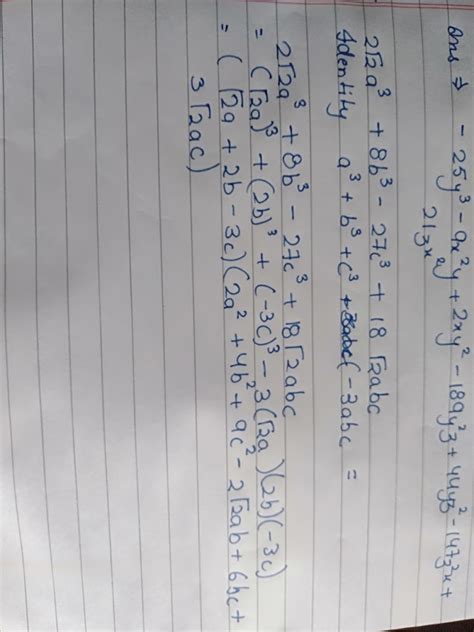 Ans ⇒ - 25y³ - 9x²y + 2xy² - 189y²z + 44yz² - 147z²x +
21zx²
2√2a³ + 8b³ - 27c³ + 18√2abc
Identity a³ + b³ + c³ - 3abc =
2√2a³ + 8b³ - 27c³ + 18√2abc
= (√2a)³ + (2b)³ + (-3c)³ - 3(√2a)(2b)(-3c)
= (√2a + 2b - 3c)(2a² + 4b² + 9c² - 2√2ab + 6bc +
3√2ac)